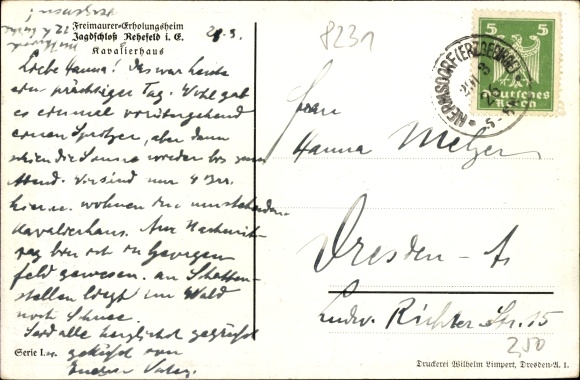 Freimaurer-Erholungsheim
Jagdschloß Rehefeld i. E.
Kavalierhaus
28.3.
8231
Liebe Hanna! Das war heute
ein prächtiger Tag. Wohl gab
es einmal vorübergehend
einen Spritzer, aber dann
schien die Sonne wieder bis zum
Abend. Wir sind nur 4 Brr.
hier u. wohnen im umstehenden
Kavalierhaus. Am Nachmit-
tag bin ich in Georgen-
feld gewesen. An Schatten-
stellen liegt im Wald
noch Schnee.
Seid alle herzlichst gegrüßt
geküßt von
Vater
Serie I.
5 5
Deutsches
Reich
HERMSDORF (ERZGEBIRGE)
Frau
Hanna Melzer
Dresden-A.
Ludw. Richter Str. 15
2,50
Druckerei Wilhelm Limpert, Dresden-A. 1.